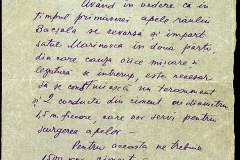 Având în vedere că în
timpul primăverii apele râului
Bacșala se revarsă și împart
satul Marinosca în două părți,
din care cauză orice mișcare și
legătură se întrerup, este necesar
să se construiască un terasament
și 2 conducte din ciment cu diametrul
45 m fiecare, care vor servi pentru
scurgerea apelor —
Pentru aceasta ne trebuie